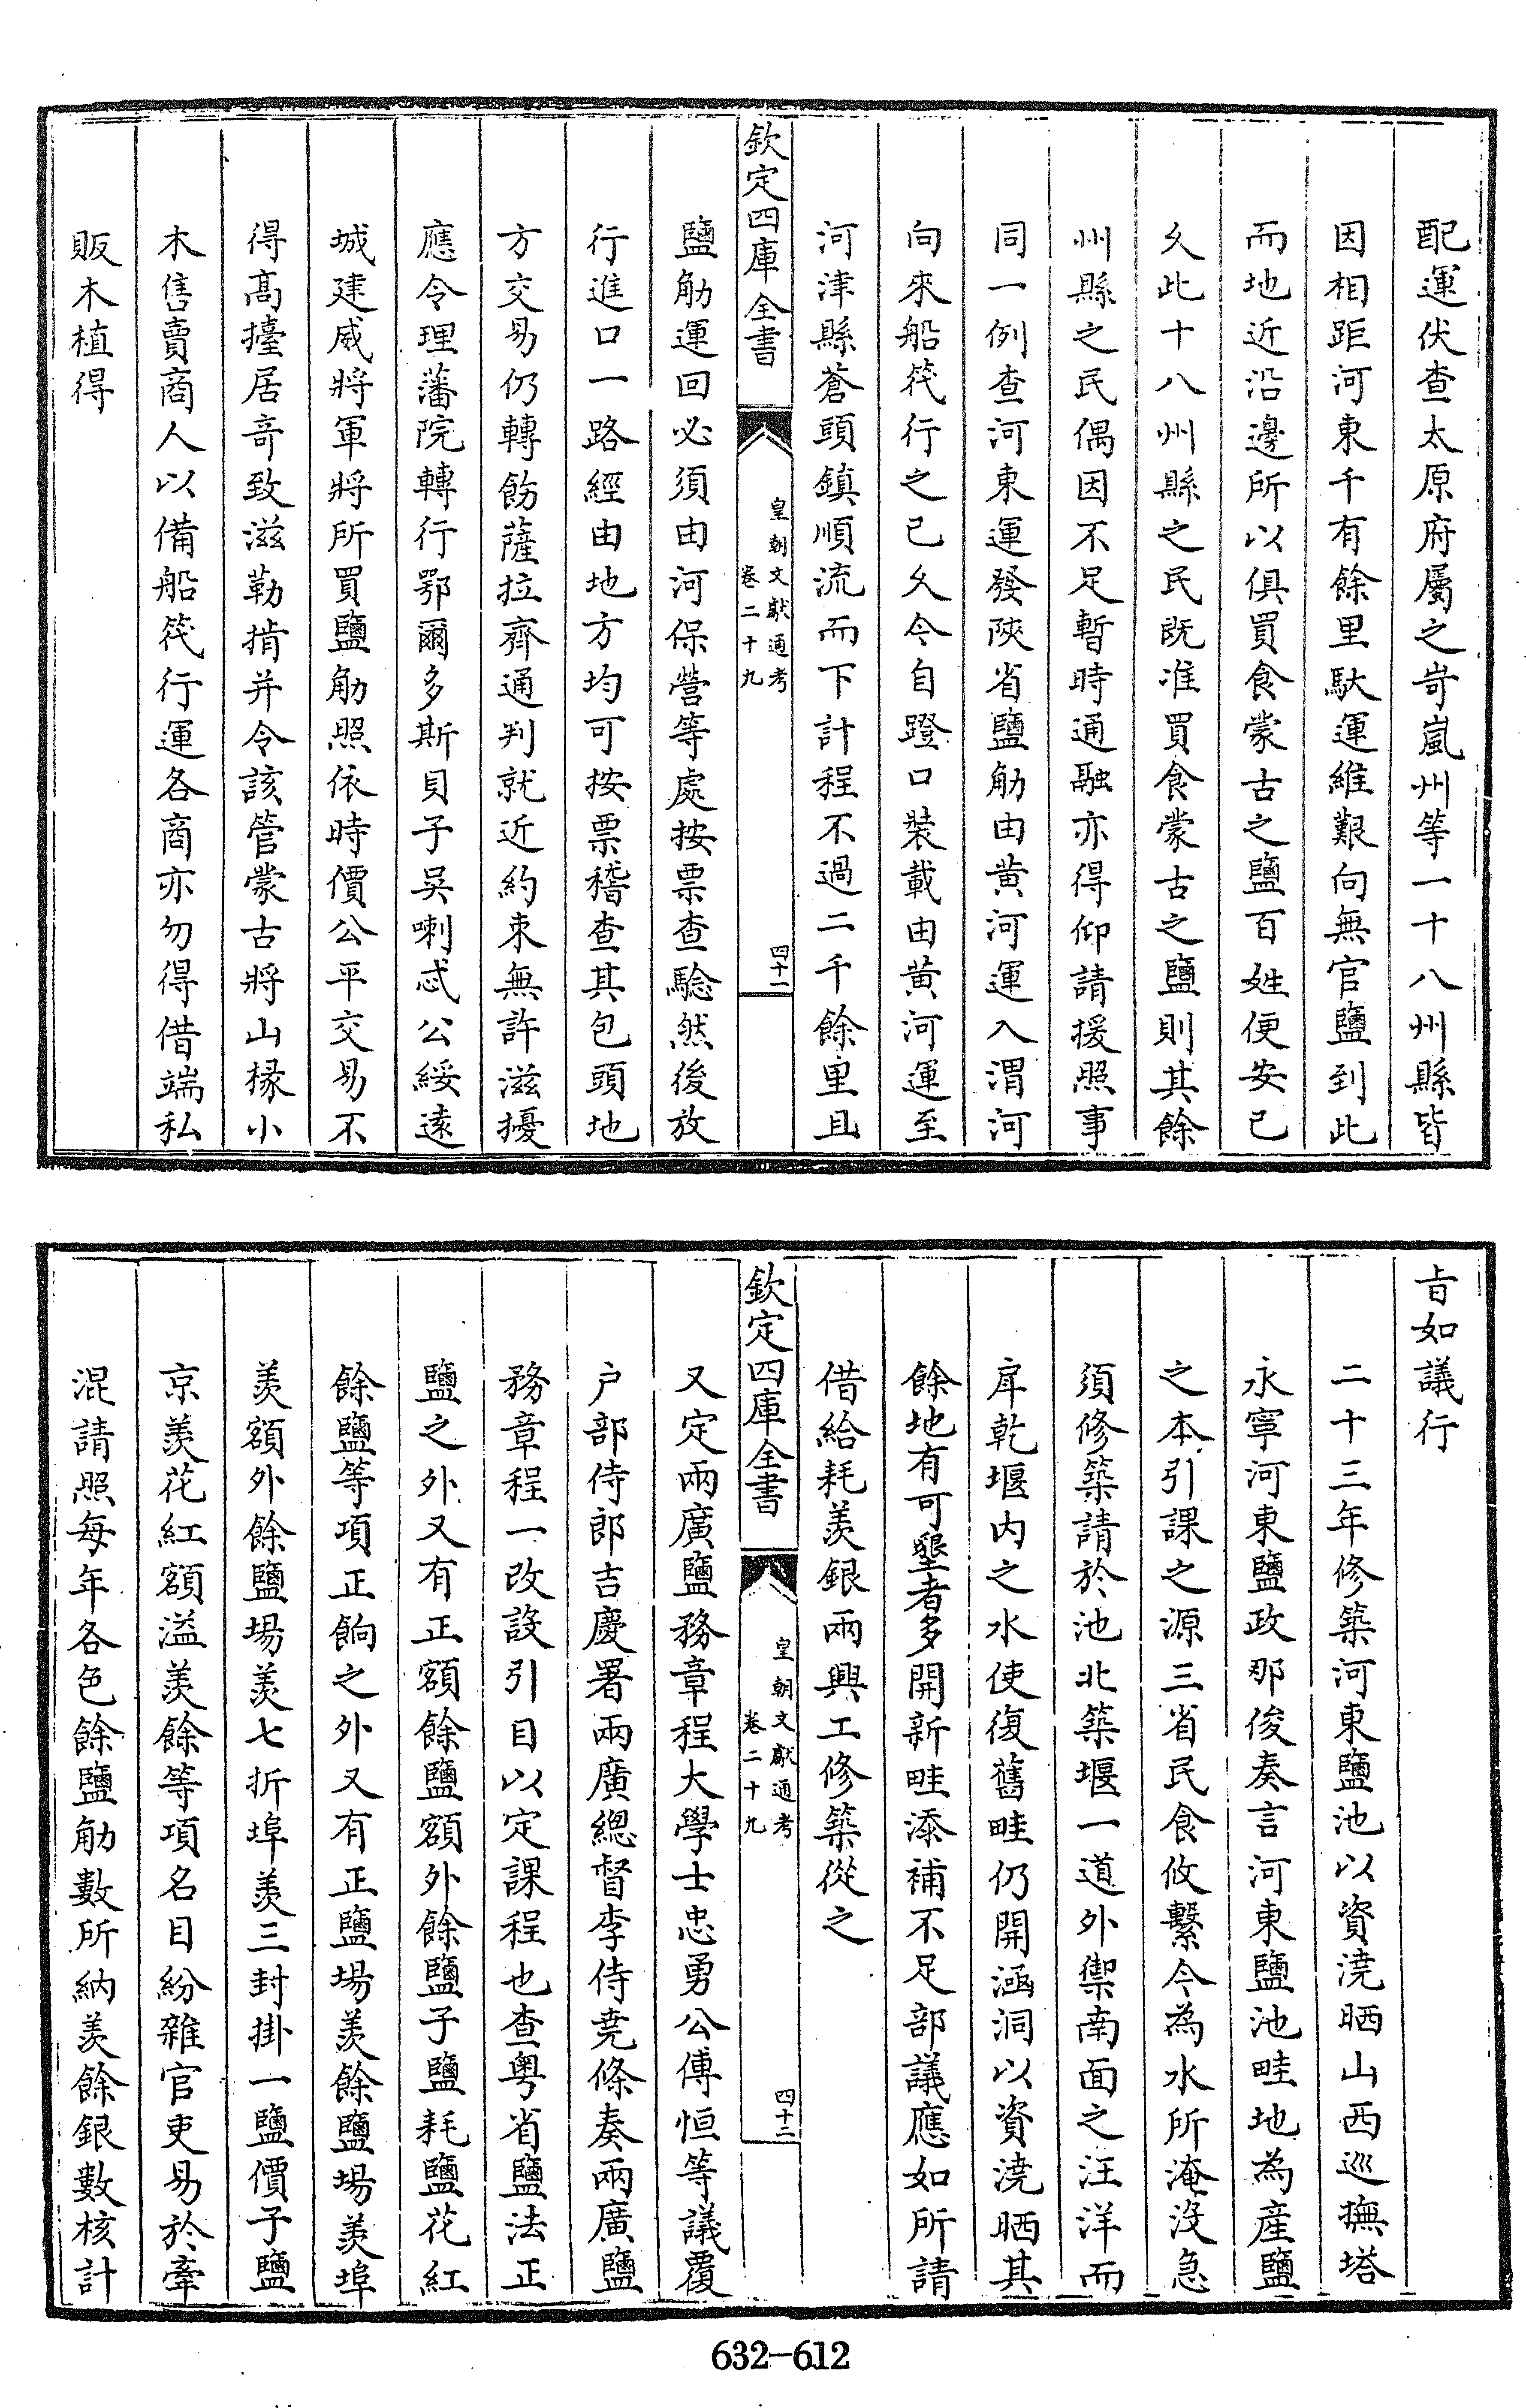 配運伏查太原府屬之岢嵐州等一十八州縣皆
因相距河東千有餘里馱運維艱向無官鹽到此
而地近沿邊所以俱買食蒙古之鹽百姓便安已
久此十八州縣之民既准買食蒙古之鹽則其餘
州縣之民偶因不足暫時通融亦得仰請援照事
同一例查河東運發陝省鹽觔由黄河運入渭河
向來船筏行之已久今自蹬口裝載由黄河運至
河津縣蒼頭鎮順流而下計程不過二千餘里且
欽定四庫全書
皇朝文獻通考
卷二十九
四十一
鹽觔運回必須由河保營等處按票查騐然後放
行進口一路經由地方均可按票稽查其包頭地
方交易仍轉飭薩拉齊通判就近約束無許滋擾
應令理藩院轉行鄂爾多斯貝子吳喇忒公綏遠
城建威將軍將所買鹽觔照依時價公平交易不
得髙擡居奇致滋勒掯并令該管蒙古將山椽小
木售賣商人以備船筏行運各商亦勿得借端私
販木植得
旨如議行
二十三年修築河東鹽池以資澆晒山西巡撫塔
永寧河東鹽政那俊奏言河東鹽池畦地為産鹽
之本引課之源三省民食攸繫今為水所淹沒急
須修築請於池北築堰一道外禦南面之汪洋而
戽乾堰内之水使復舊畦仍開涵洞以資澆晒其
餘地有可墾者多開新畦添補不足部議應如所請
借給耗羨銀兩興工修築從之
欽定四庫全書
皇朝文獻通考
卷二十九
四十二
又定兩廣鹽務章程大學士忠勇公傅恒等議覆
户部侍郎吉慶署兩廣總督李侍堯條奏兩廣鹽
務章程一改設引目以定課程也查粤省鹽法正
鹽之外又有正額餘鹽額外餘鹽子鹽耗鹽花紅
餘鹽等項正餉之外又有正鹽場羨餘鹽場羨埠
羨額外餘鹽場羨七折埠羨三封掛一鹽價子鹽
京羨花紅額溢羨餘等項名目紛雜官吏易於牽
混請照每年各色餘鹽觔數所納羨餘銀數核計
632-612